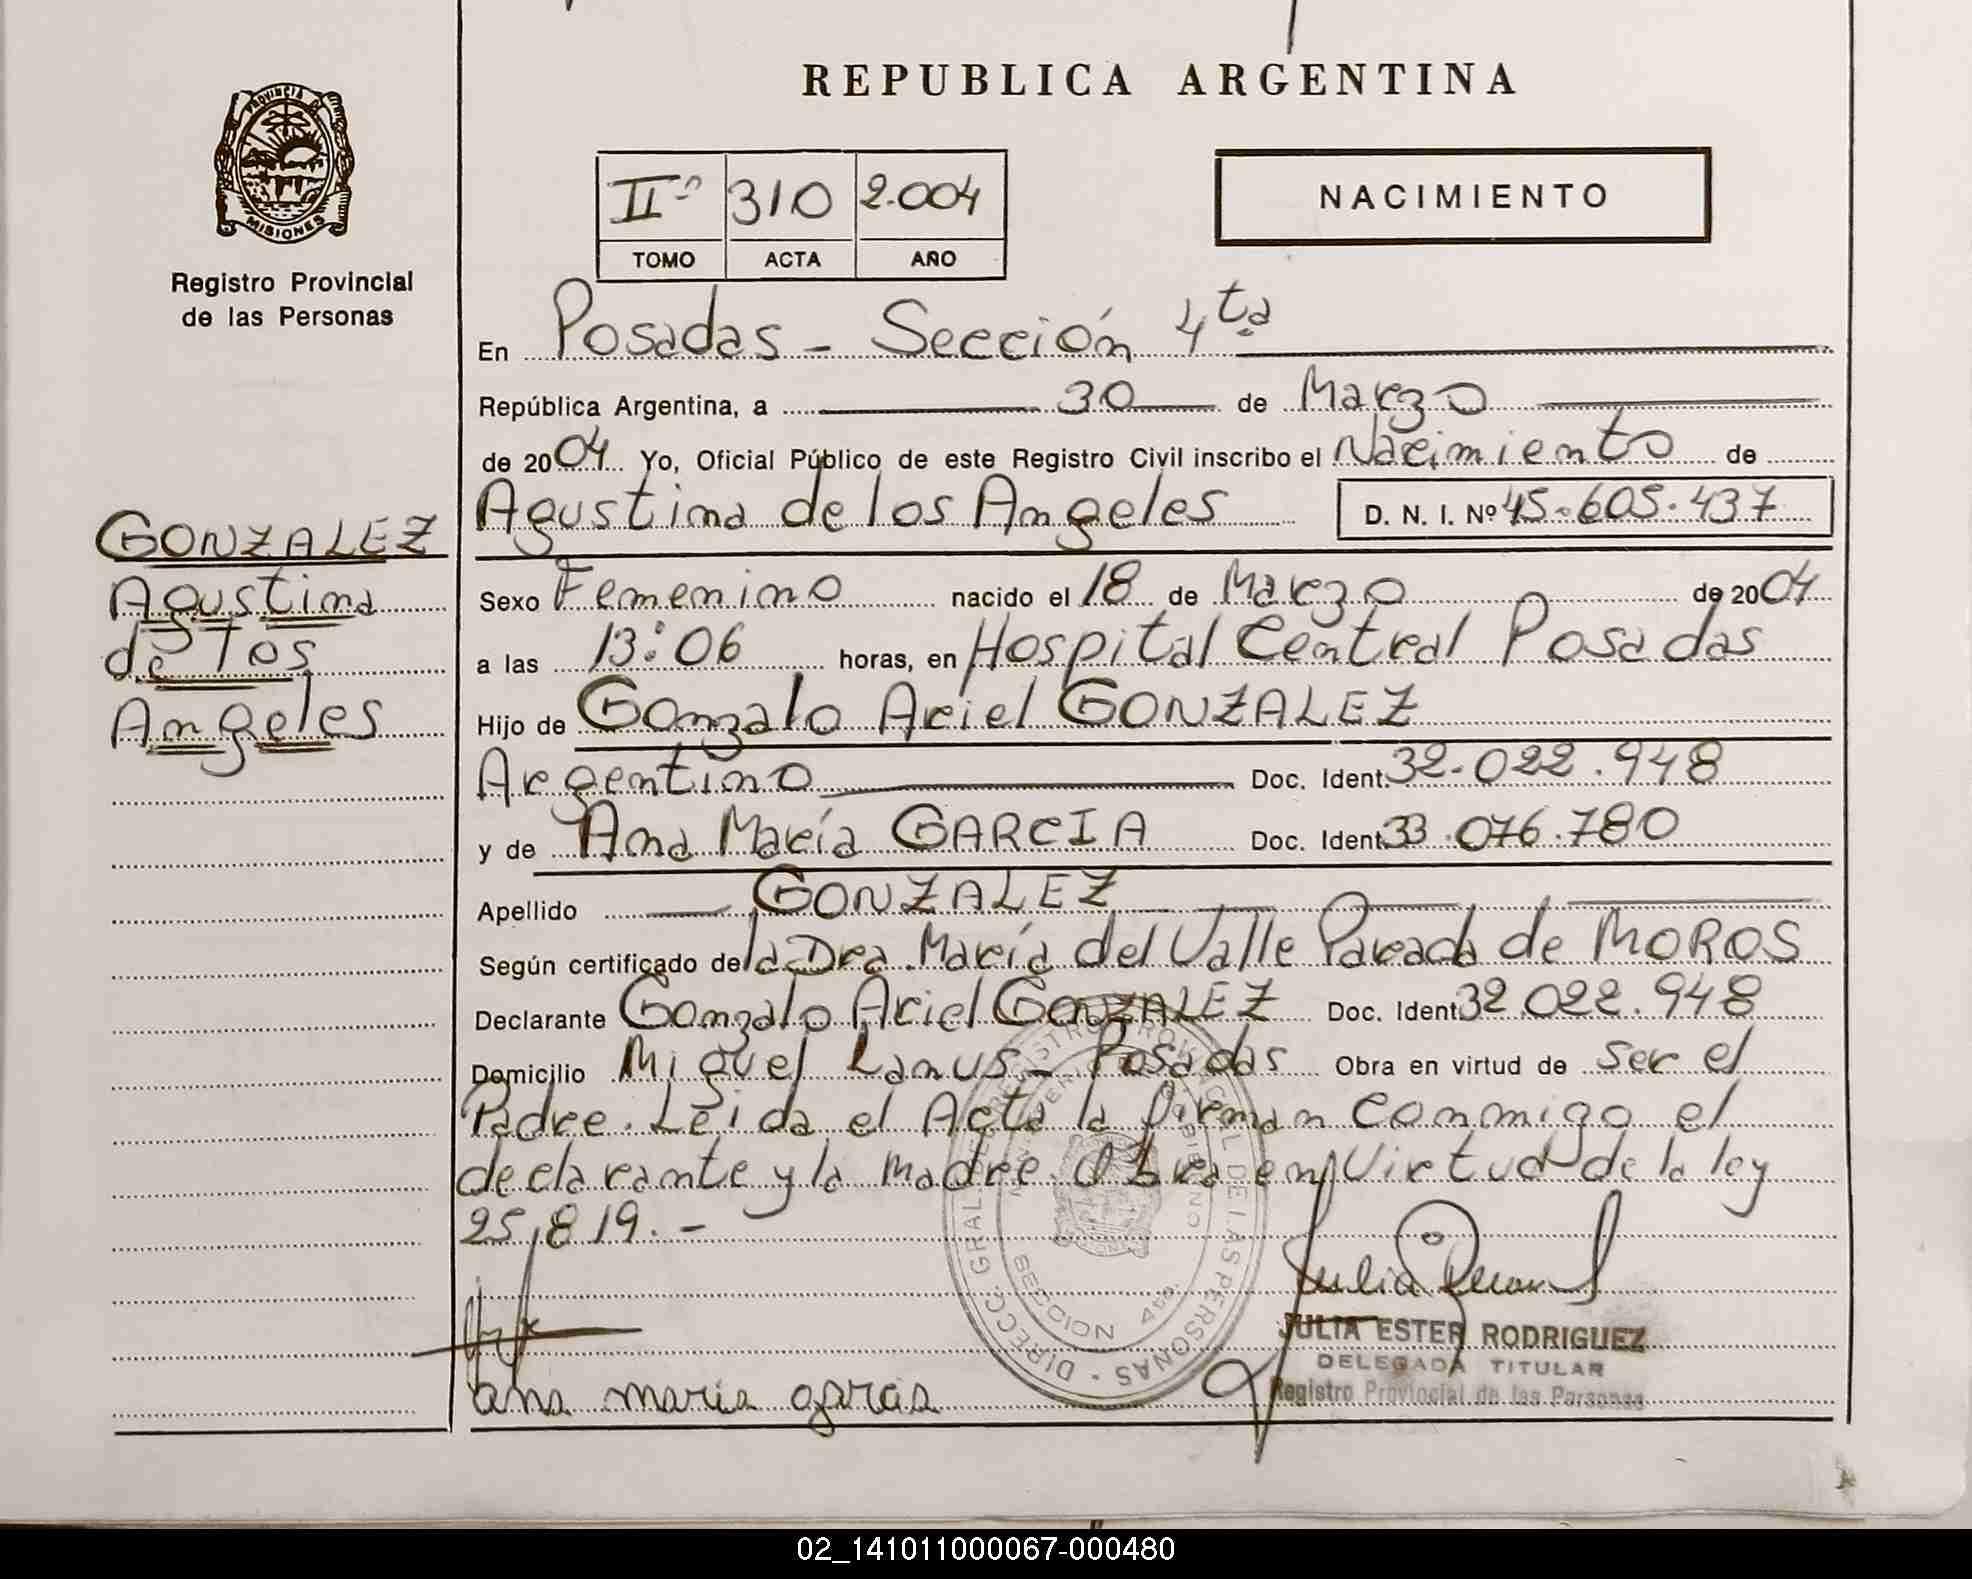 REPUBLICA ARGENTINA
PROVINCIA DE
MISIONES
Registro Provincial
de las Personas
IIº 310 2.004
TOMO ACTA AÑO
NACIMIENTO
En Posadas - Sección 4ta
República Argentina, a 30 de Marzo
de 2004 Yo, Oficial Público de este Registro Civil inscribo el Nacimiento de
Agustina de los Angeles D. N. I. Nº 45.605.437
GONZALEZ
Agustina
de los
Angeles
Sexo Femenino nacido el 18 de Marzo de 2004
a las 13:06 horas, en Hospital Central Posadas
Hijo de Gonzalo Ariel GONZALEZ
Argentino Doc. Ident. 32.022.948
y de Ana María GARCIA Doc. Ident. 33.076.780
Apellido GONZALEZ
Según certificado de la Dra. María del Valle Parada de MOROS
Declarante Gonzalo Ariel GONZALEZ Doc. Ident. 32.022.948
Domicilio Miguel Lanus - Posadas Obra en virtud de ser el
Padre. Leida el Acta la firman conmigo el
declarante y la madre. Obra en virtud de la ley
25.819.-
DIRECC. GRAL. DEL REGISTRO PROVINCIAL DE LAS PERSONAS
SECCION 4ta.
ana maria garcia
JULIA ESTER RODRIGUEZ
DELEGADA TITULAR
Registro Provincial de las Personas
02_141011000067-000480